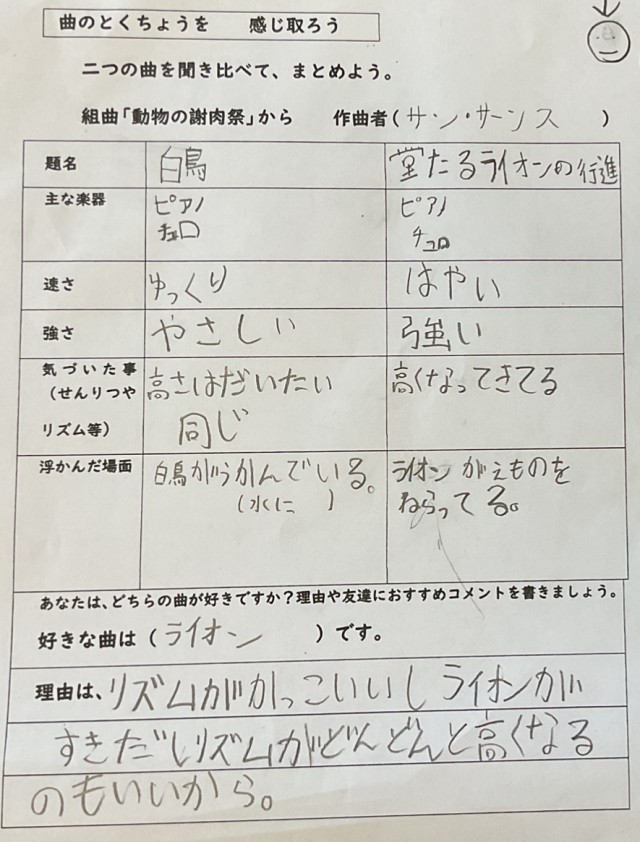 曲のとくちょうを 感じ取ろう
二つの曲を聞き比べて、まとめよう。
組曲「動物の謝肉祭」から 作曲者(サン・サーンス)
題名 白鳥 堂たるライオンの行進
主な楽器 ピアノ ピアノ
チェロ チェロ
速さ ゆっくり はやい
強さ やさしい 強い
気づいた事 高さはだいたい 高くなってきてる
(せんりつや
リズム等) 同じ
浮かんだ場面 白鳥がうかんでいる。 ライオンがえものを
(水に ) ねらってる。
あなたは、どちらの曲が好きですか?理由や友達におすすめコメントを書きましょう。
好きな曲は(ライオン)です。
理由は、リズムがかっこいいしライオンが
すきだしリズムがどんどんと高くなる
のもいいから。